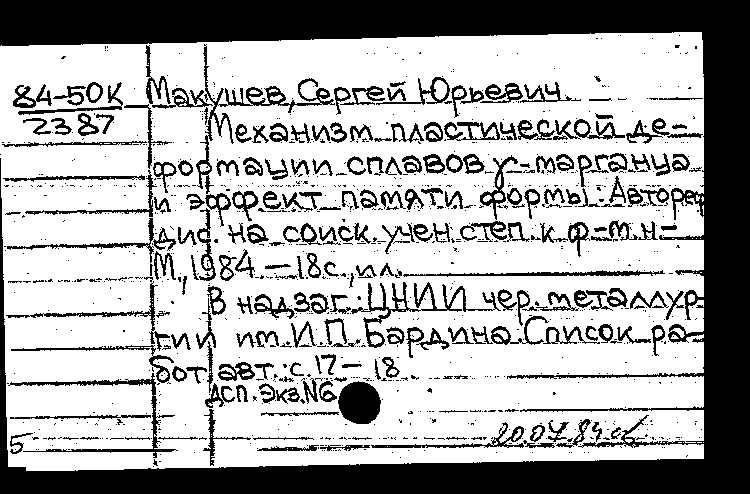 84-50К Макушев, Сергей Юрьевич.
2387 Механизм пластической де-
формации сплавов γ-марганца
и эффект памяти формы: Автореф
дис. на соиск. учен. степ. к. ф-м. н-
М., 1984 — 18с., ил.
В надзаг.: ЦНИИ чер. металлур-
гии им. И.П. Бардина. Список ра-
бот авт.: с. 17 — 18.
ДСП. Экз. N6
5 20.07.84